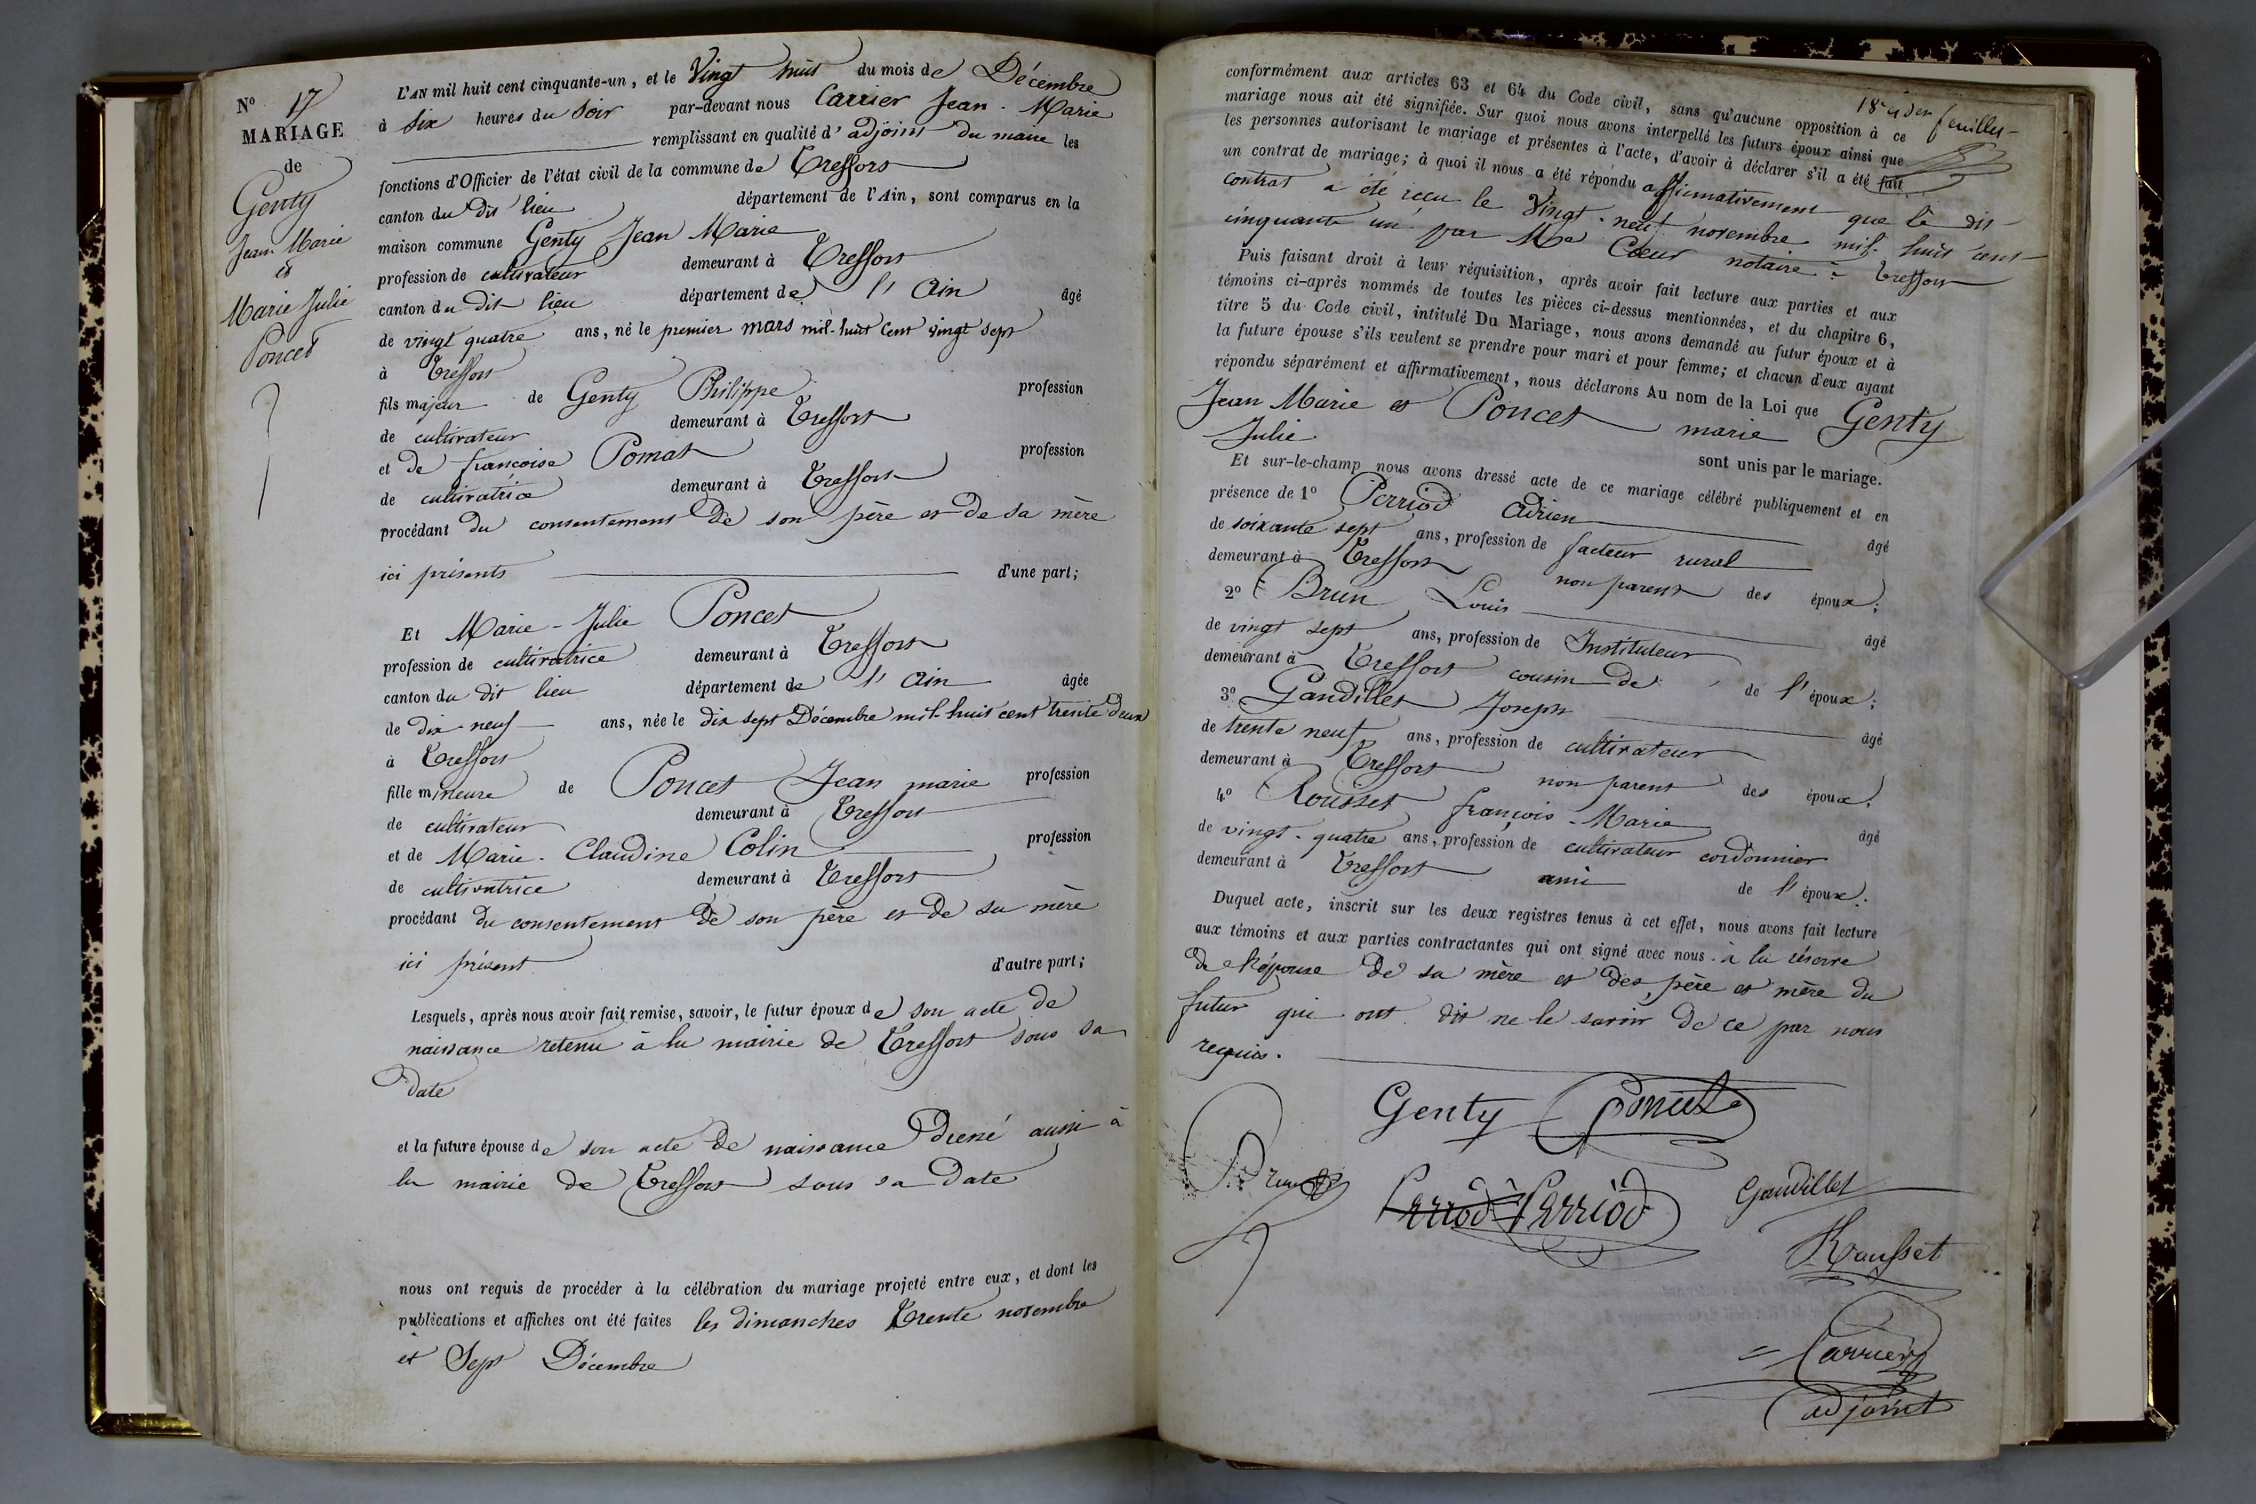 N° 17
MARIAGE
de
Genty
Jean Marie
et
Marie Julie
Poncet
L'AN mil huit cent cinquante-un, et le Vingt huit du mois de Décembre
à six heures du soir par-devant nous Carrier Jean-Marie
remplissant en qualité d'adjoint du maire les
fonctions d'Officier de l'état civil de la commune de Treffort
canton du dit lieu département de l'Ain, sont comparus en la
maison commune Genty Jean Marie
profession de cultivateur demeurant à Treffort
canton du dit lieu département de l'Ain âgé
de vingt quatre ans, né le premier mars mil-huit cent vingt sept
à Treffort
fils majeur de Genty Philippe profession
de cultivateur demeurant à Treffort
et de françoise Pomat profession
de cultivatrice demeurant à Treffort
procédant du consentement de son père et de sa mère
ici présents d'une part;
Et Marie-Julie Poncet
profession de cultivatrice demeurant à Treffort
canton du dit lieu département de l'Ain âgée
de dix-neuf ans, née le dix sept Décembre mil-huit cent trente deux
à Treffort
fille mineure de Poncet Jean marie profession
de cultivateur demeurant à Treffort
et de Marie-Claudine Colin profession
de cultivatrice demeurant à Treffort
procédant du consentement de son père et de sa mère
ici présent d'autre part;
Lesquels, après nous avoir fait remise, savoir, le futur époux de son acte de
naissance retenu à la mairie de Treffort sous sa
date
et la future épouse de son acte de naissance aussi à
la mairie de Treffort sous sa date
nous ont requis de procéder à la célébration du mariage projeté entre eux, et dont les
publications et affiches ont été faites les dimanches Trente novembre
et Sept Décembre
18e feuillet
conformément aux articles 63 et 64 du Code civil, sans qu'aucune opposition à ce
mariage nous ait été signifiée. Sur quoi nous avons interpellé les futurs époux ainsi que
les personnes autorisant le mariage et présentes à l'acte, d'avoir à déclarer s'il a été fait
un contrat de mariage; à quoi il nous a été répondu affirmativement que le dit
contrat a été reçu le Vingt-neuf novembre mil-huit cent
cinquante un par Me Cœur notaire à Treffort
Puis faisant droit à leur réquisition, après avoir fait lecture aux parties et aux
témoins ci-après nommés de toutes les pièces ci-dessus mentionnées, et du chapitre 6,
titre 5 du Code civil, intitulé Du Mariage, nous avons demandé au futur époux et à
la future épouse s'ils veulent se prendre pour mari et pour femme; et chacun d'eux ayant
répondu séparément et affirmativement, nous déclarons Au nom de la Loi que Genty
Jean Marie et Poncet marie
Julie sont unis par le mariage.
Et sur-le-champ nous avons dressé acte de ce mariage célébré publiquement et en
présence de 1° Perriod Adrien âgé
de soixante sept ans, profession de facteur rural
demeurant à Treffort non parent des époux;
2° Brun Louis âgé
de vingt sept ans, profession de Instituteur
demeurant à Treffort cousin de de l'époux;
3° Gandillet Joseph âgé
de trente neuf ans, profession de cultivateur
demeurant à Treffort non parent des époux;
4° Rousset françois-Marie âgé
de vingt-quatre ans, profession de cultivateur cordonnier
demeurant à Treffort ami de l'époux.
Duquel acte, inscrit sur les deux registres tenus à cet effet, nous avons fait lecture
aux témoins et aux parties contractantes qui ont signé avec nous. à la réserve
de l'épouse de sa mère et des père et mère du
futur qui ont dit ne le savoir de ce par nous
requis.
Genty Poncet
Brun Perriod Perriod Gandillet
Rousset
Carrier
adjoint